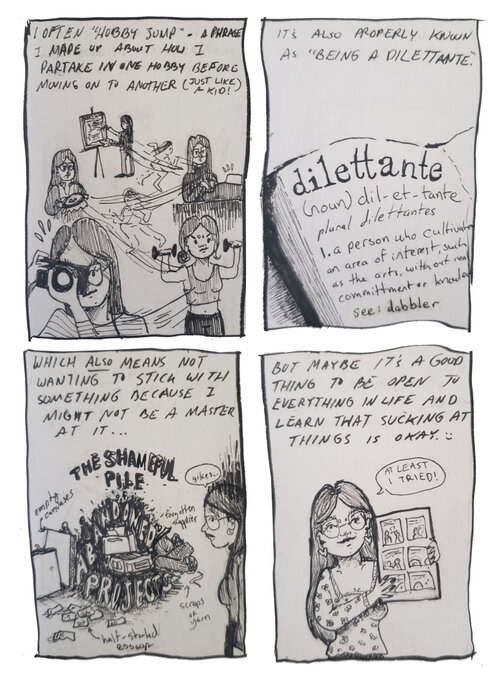 I OFTEN "HOBBY JUMP" - A PHRASE
I MADE UP ABOUT HOW I
PARTAKE IN ONE HOBBY BEFORE
MOVING ON TO ANOTHER (JUST LIKE
A KID!)
IT'S ALSO PROPERLY KNOWN
AS "BEING A DILETTANTE."
dilettante
(noun) dil-et-tante
plural dilettantes
1. a person who cultivates
an area of interest, such
as the arts, without real
committment or knowledge
see: dabbler
WHICH ALSO MEANS NOT
WANTING TO STICK WITH
SOMETHING BECAUSE I
MIGHT NOT BE A MASTER
AT IT...
THE SHAMEFUL
PILE
OF
ABANDONED
PROJECTS
yikes.
empty
canvases
forgotten
supplies
scraps
of
yarn
half-started
BUT MAYBE IT'S A GOOD
THING TO BE OPEN TO
EVERYTHING IN LIFE AND
LEARN THAT SUCKING AT
THINGS IS OKAY. :)
AT LEAST
I TRIED!